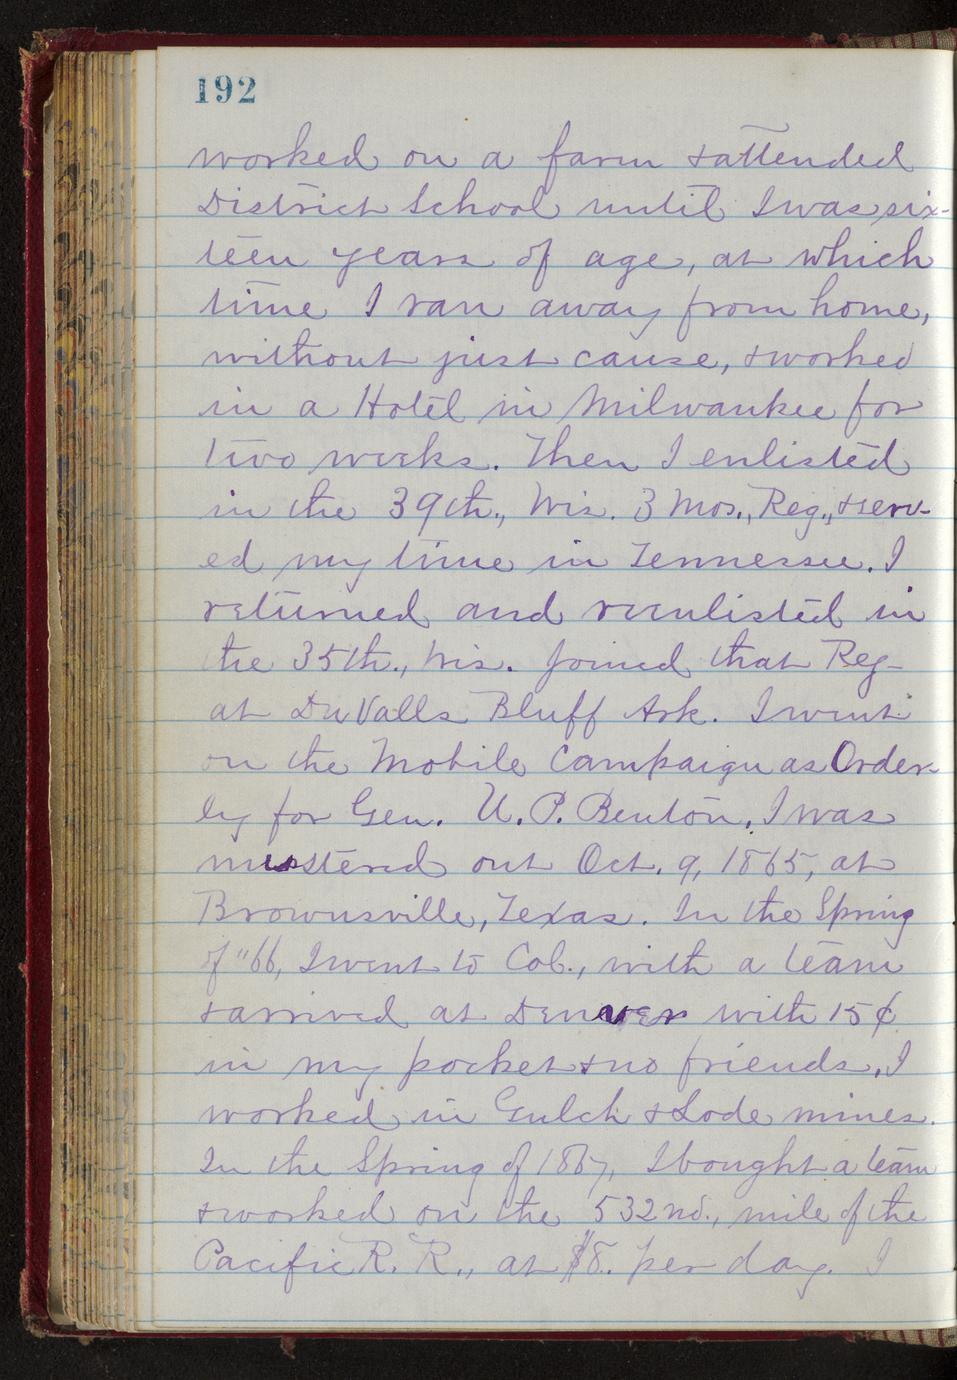 192
worked on a farm & attended
District School until I was six-
teen years of age, at which
time I ran away from home,
without just cause, & worked
in a Hotel in Milwaukee for
two weeks. Then I enlisted
in the 39th., Wis. 3 Mos., Reg., & serv-
ed my time in Tennessee. I
returned and reenlisted in
the 35th., Wis. Joined that Reg-
at DuValls Bluff Ark. I went
on the Mobile Campaign as Order-
ly for Gen. U. P. Benton. I was
mustered out Oct. 9, 1865, at
Brownsville, Texas. In the Spring
of "66, I went to Col., with a team
& arrived at Denver with 15¢
in my pocket & no friends, I
worked in Gulch & Lode mines.
In the Spring of 1867, I bought a team
& worked on the 532nd., mile of the
Pacific R. R., at $8. per day. I